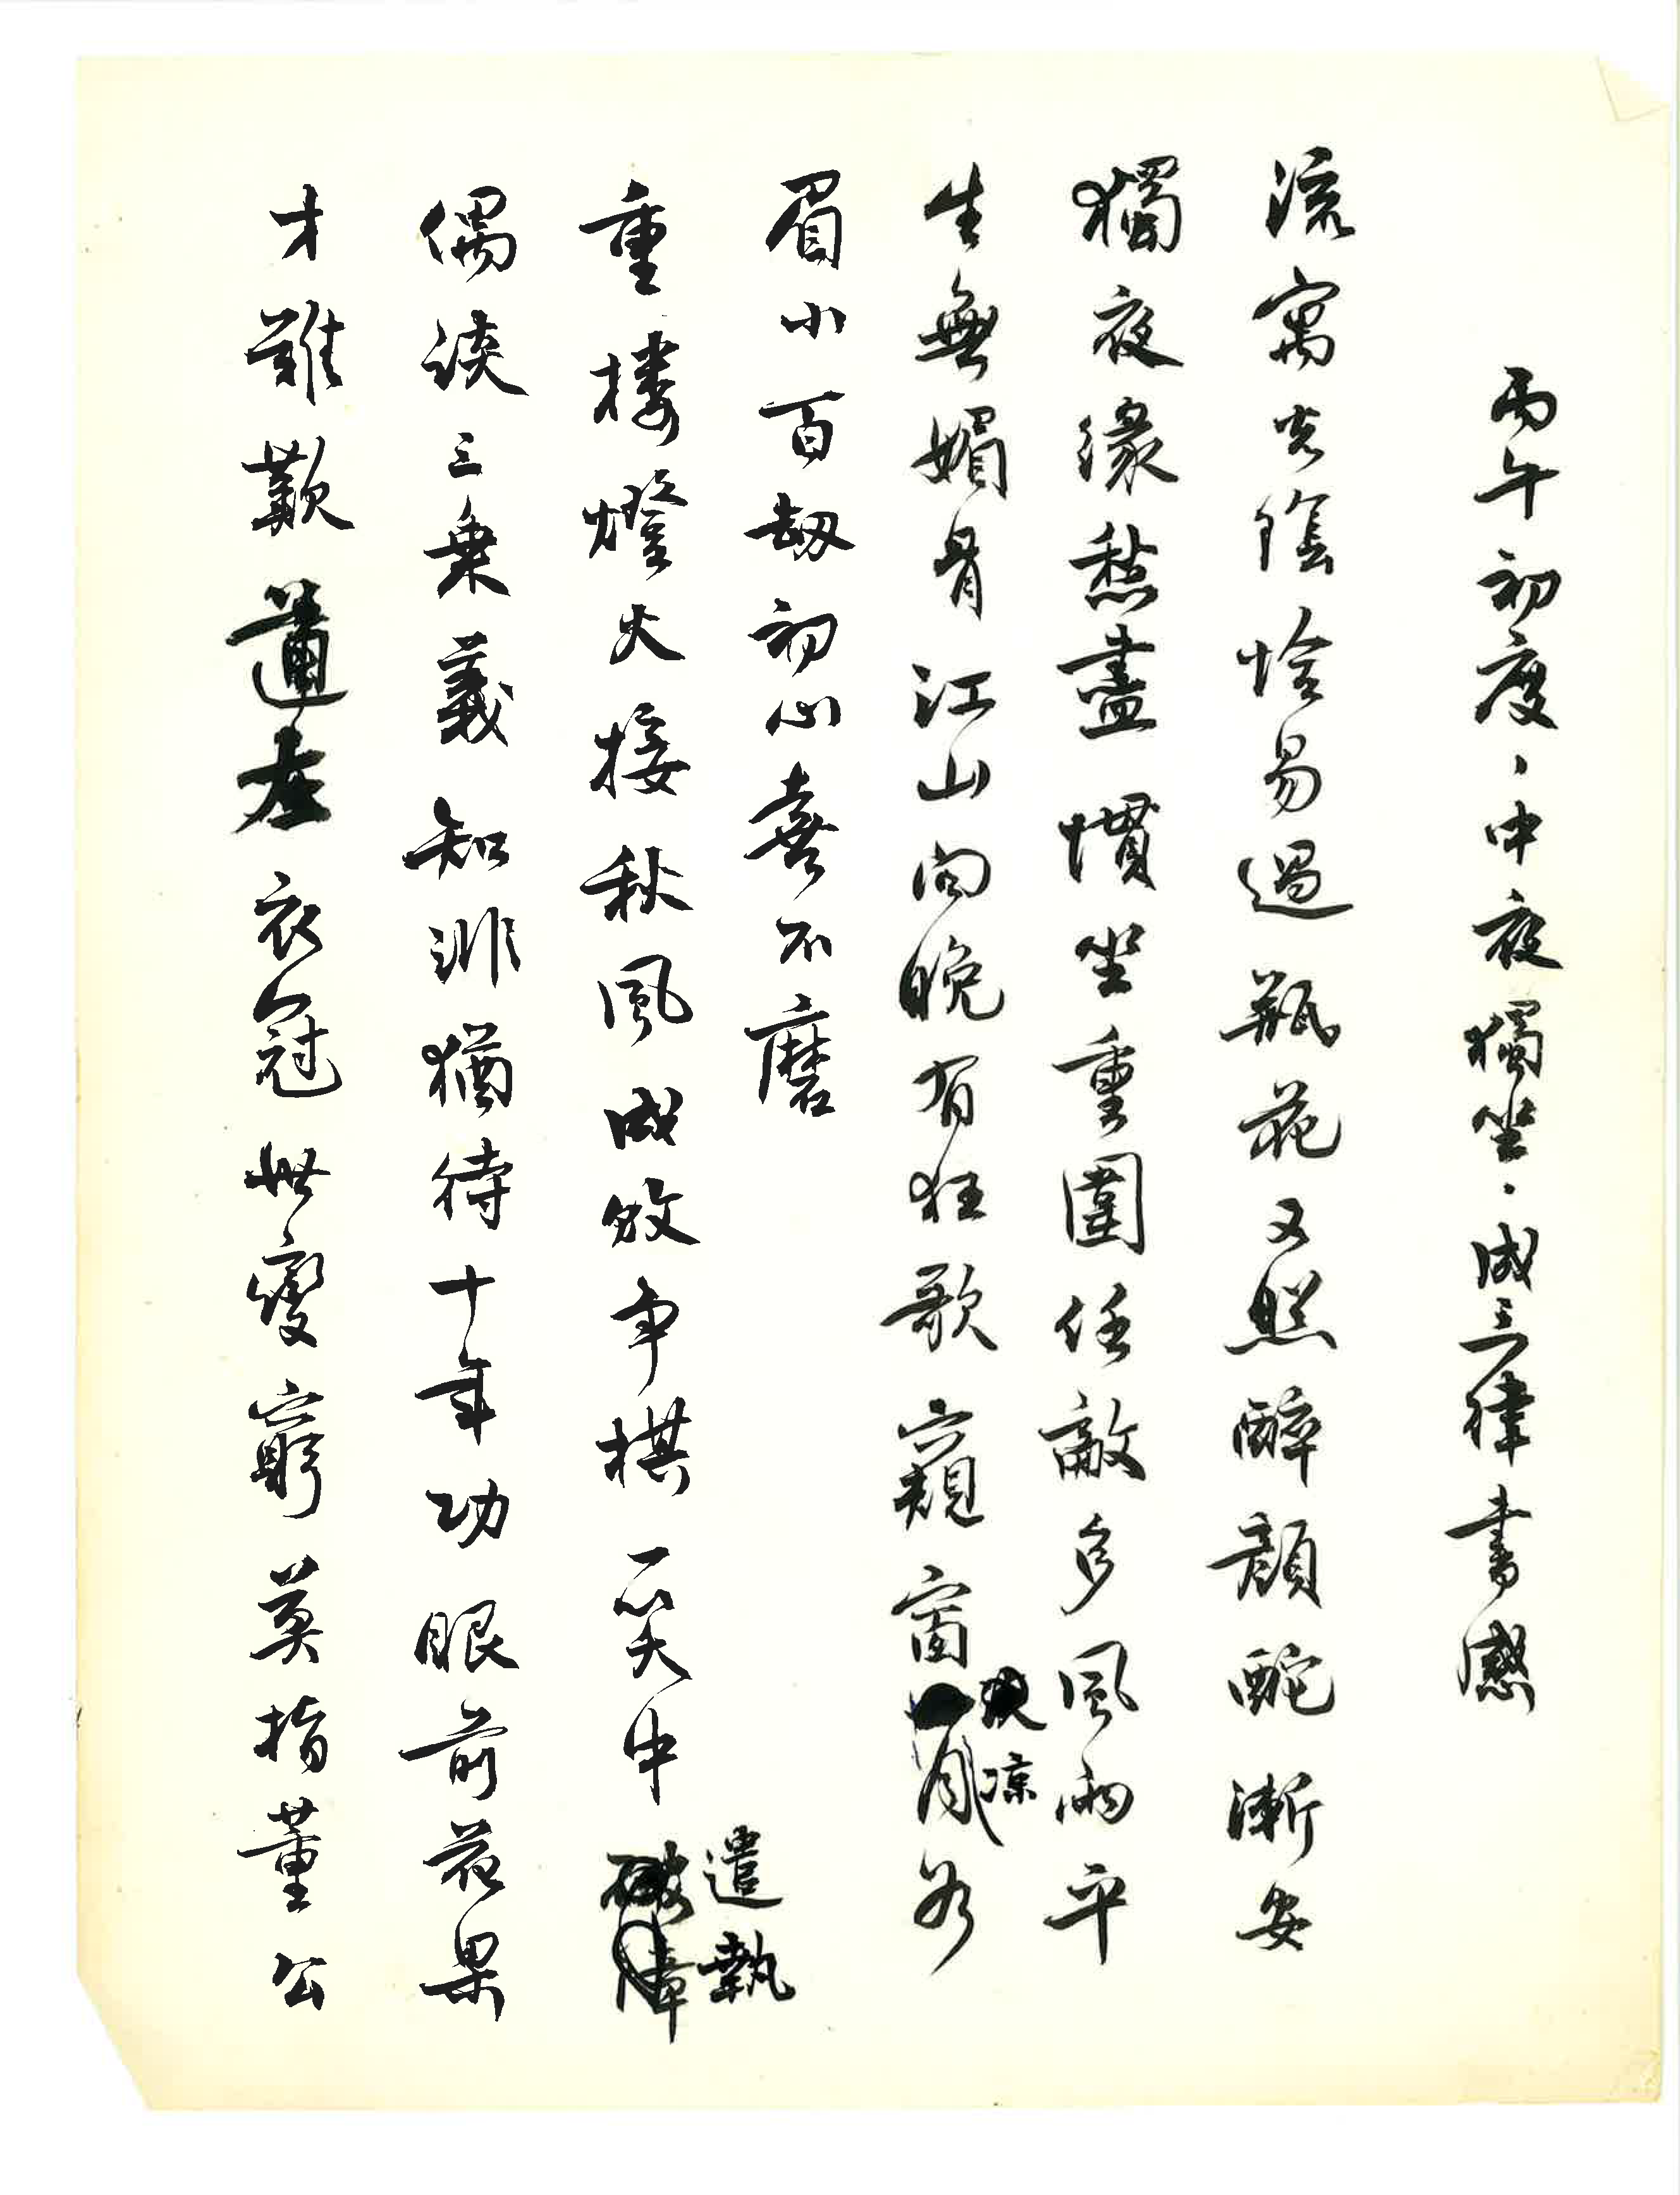 丙午初度、中夜獨坐、成三律書感
流寓光陰恰易過瓶花又照醉顏酡漸安
獨夜緣愁盡慣坐重圍任敵多風雨平
生無媚骨江山向晚有狂歌窺窗涼月如
眉小百劫初心喜不磨
重樓燈火接秋風成敗爭棋一笑中遣執
偶談三乘義知非猶待十年功眼前花果
才難歎道左衣冠世變窮莫指董公